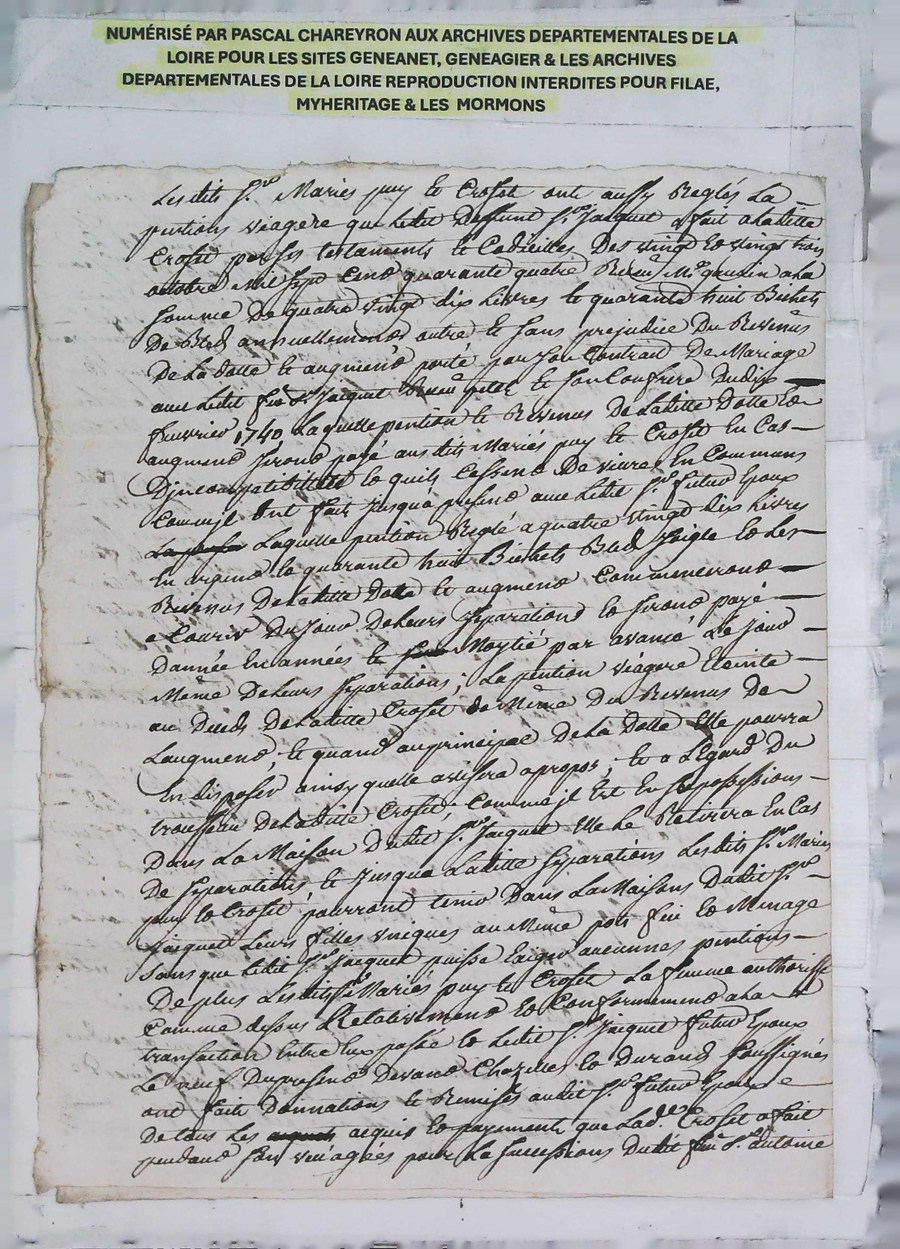 NUMÉRISÉ PAR PASCAL CHAREYRON AUX ARCHIVES DEPARTEMENTALES DE LA
LOIRE POUR LES SITES GENEANET, GENEAGIER & LES ARCHIVES
DEPARTEMENTALES DE LA LOIRE REPRODUCTION INTERDITES POUR FILAE,
MYHERITAGE & LES MORMONS
Lesdits Srs Mariés puy le Crosit ont aussy Reglés La
pention viagere que ledit Deffunt Sr Jacquet a fait a Laditte
Crosit par ses testaments et Codiciles Des vingt et vingt trois
octobre mil sept Cens quarante quatre Me gauzin a La
somme De quatre vingt dix Livres et quarante huit Bichets
De Bled annuellement outre et sans prejudice Du Revenus
De La Dotte et augment porté par son Contrait De Mariage
avec Ledit feu Sr Jacquet et son Confrere Du dix
feuvrier 1740 Laquelle pention et Revenus De Laditte Dotte et
augment seront payé aux dits Mariés puy et Crosit En Cas
D'jncompatibilité et quils Cessent De vivre En Commun
Comme jl ont fait jusqua present avec Ledit Sr futur Epoux
Laquelle pention Reglé a quatre vingt dix Livres
En argent et quarante huit Bichets Bled seigle et Les
Revenus De Laditte Dotte et augment Commenceront
a Courir Du jour De Leurs separations et seront payé
D'année En années et Moytié par avance Le jour
Même De Leurs separations; La pention viagere Eteinte
au Deces De Laditte Crosit De Même Du Revenus De
Laugment, et quand au principal De La Dotte Elle pourra
En disposer ainsy quelle avisera apropos; et a L'Egard Du
trousseau De Laditte Crosit, Comme jl Est En sa possessions
Dans La Maison Dudit Sr Jacquet Elle Le Retirera En Cas
De separations, et jusqua Laditte separations Lesdits Srs Mariés
puy et Crosit pourront tenir Dans La Maisons Dudit Sr
Jacquet Leurs filles vniques au Même pot feu et Menage
sans que Ledit Sr Jacquet puisse Exiger aucunnes pentions
De plus Lesdits Srs Mariés puy et Crosit La femme authorisée
Comme dessus Relativement et Conformement a La
transaction Entre Eux passée et Ledit Sr Jacquet futur Epoux
Le neuf Dupresent Devant Charles et Durand soussignés
ont faits Donnations et Remises audit Sr futur Epoux
De tous Les acquis et payements que Lade Crosit a fait
pendant son pour La successions Dudit feu Sr antoine